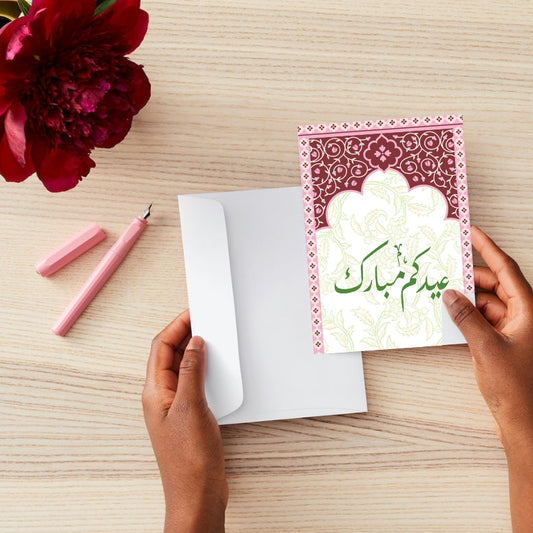 عيدكم مبارك